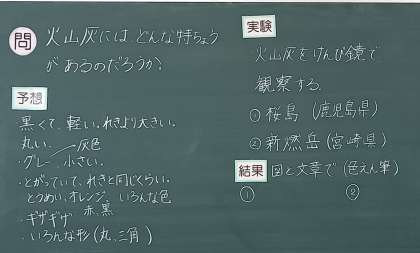 問 火山灰にはどんな特ちょう
があるのだろうか。
予想
黒くて、軽い。れきより大きい。
丸い。 灰色
・グレー 小さい。
・とがっていて、れきと同じくらい。
とうめい、オレンジ、いろんな色
・ギザギザ 赤、黒
・いろんな形(丸、三角)
実験
火山灰をけんび鏡で
観察する。
① 桜島 (鹿児島県)
② 新燃岳 (宮崎県)
結果 図と文章で (色えん筆)
① ②